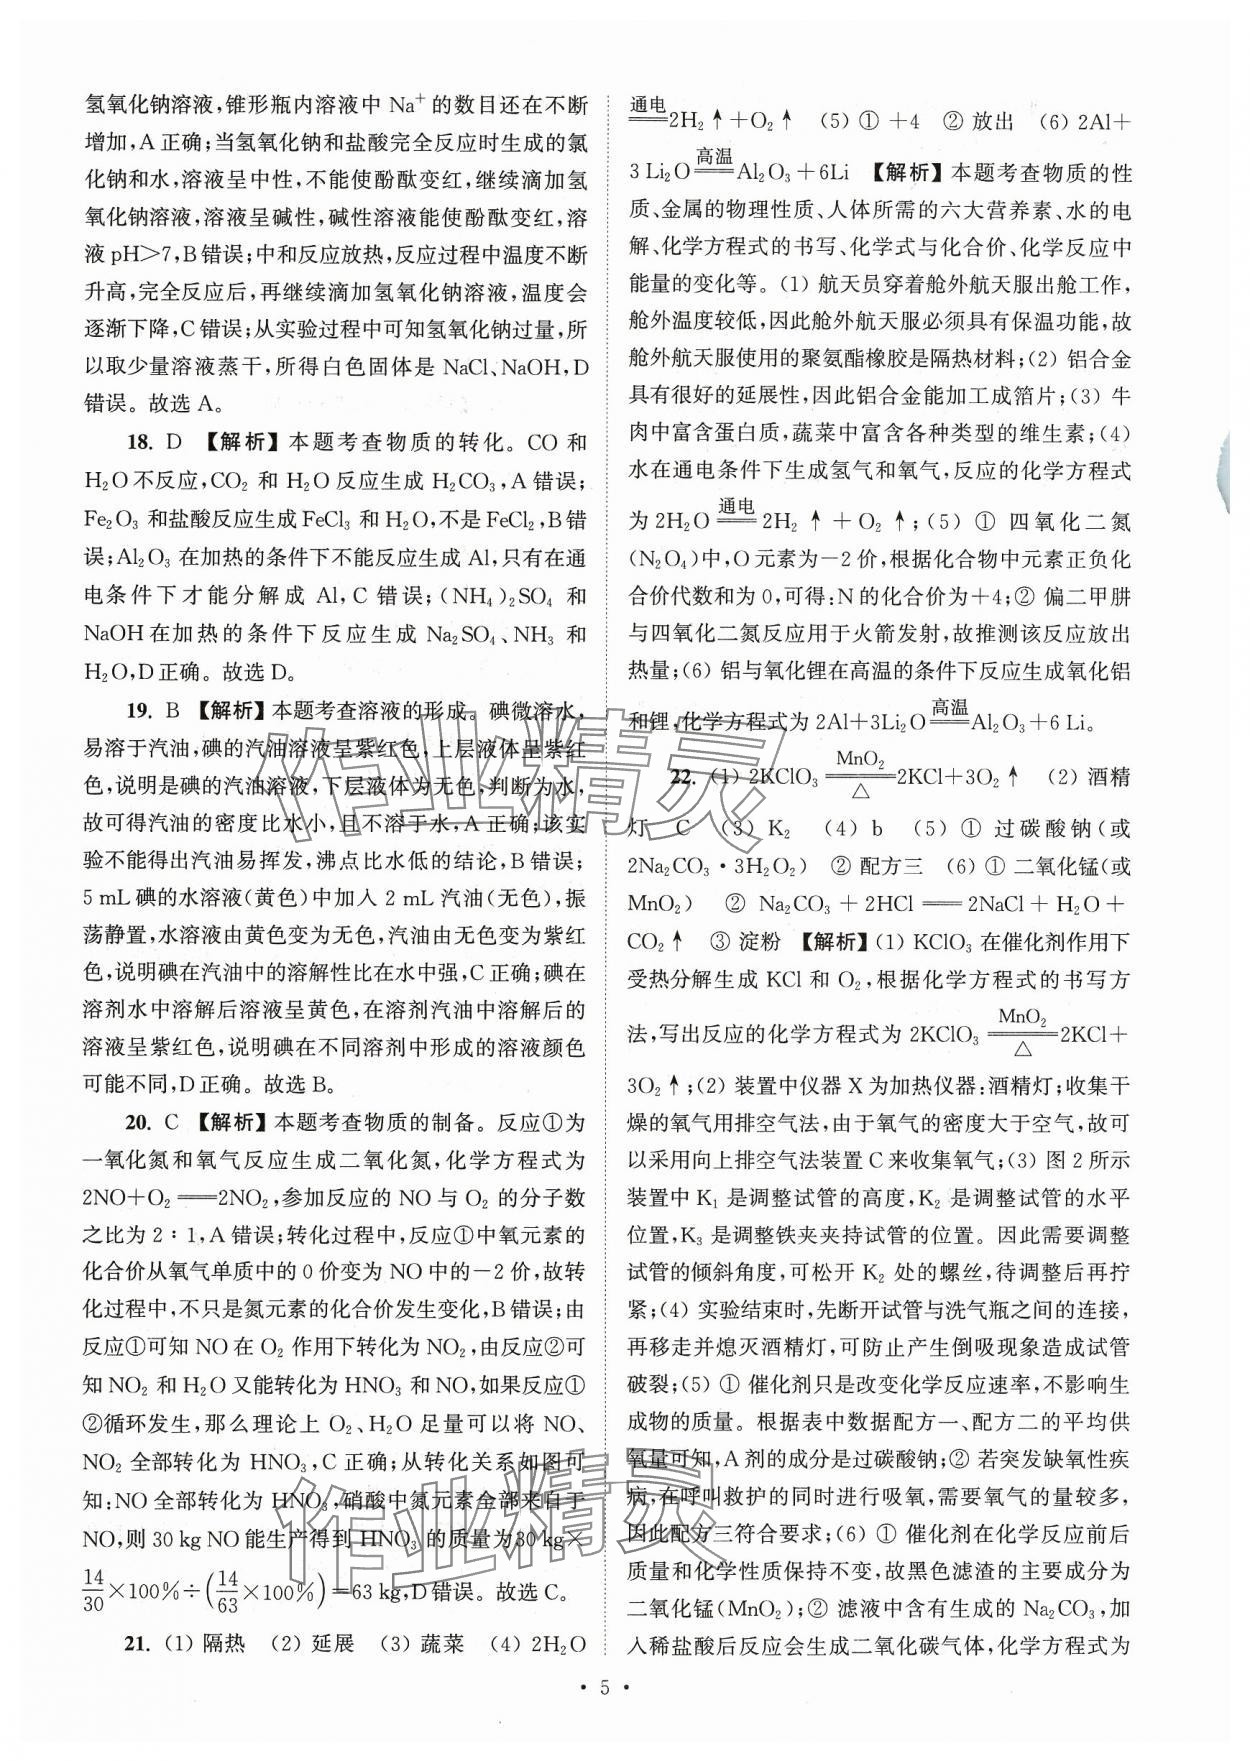 氢氧化钠溶液,锥形瓶内溶液中 Na⁺ 的数目还在不断
增加,A 正确;当氢氧化钠和盐酸完全反应时生成的氯
化钠和水,溶液呈中性,不能使酚酞变红,继续滴加氢
氧化钠溶液,溶液呈碱性,碱性溶液能使酚酞变红,溶
液 pH＞7,B 错误;中和反应放热,反应过程中温度不断
升高,完全反应后,再继续滴加氢氧化钠溶液,温度会
逐渐下降,C 错误;从实验过程中可知氢氧化钠过量,所
以取少量溶液蒸干,所得白色固体是 NaCl、NaOH,D
错误。故选 A。
18. D 【解析】本题考查物质的转化。CO 和
H₂O 不反应,CO₂ 和 H₂O 反应生成 H₂CO₃,A 错误;
Fe₂O₃ 和盐酸反应生成 FeCl₃ 和 H₂O,不是 FeCl₂,B 错
误;Al₂O₃ 在加热的条件下不能反应生成 Al,只有在通
电条件下才能分解成 Al,C 错误;(NH₄)₂SO₄ 和
NaOH 在加热的条件下反应生成 Na₂SO₄、NH₃ 和
H₂O,D 正确。故选 D。
19. B 【解析】本题考查溶液的形成。碘微溶水,
易溶于汽油,碘的汽油溶液呈紫红色,上层液体呈紫红
色,说明是碘的汽油溶液,下层液体为无色,判断为水,
故可得汽油的密度比水小,且不溶于水,A 正确;该实
验不能得出汽油易挥发,沸点比水低的结论,B 错误;
5 mL 碘的水溶液(黄色)中加入 2 mL 汽油(无色),振
荡静置,水溶液由黄色变为无色,汽油由无色变为紫红
色,说明碘在汽油中的溶解性比在水中强,C 正确;碘在
溶剂水中溶解后溶液呈黄色,在溶剂汽油中溶解后的
溶液呈紫红色,说明碘在不同溶剂中形成的溶液颜色
可能不同,D 正确。故选 B。
20. C 【解析】本题考查物质的制备。反应①为
一氧化氮和氧气反应生成二氧化氮,化学方程式为
2NO+O₂ ═══ 2NO₂,参加反应的 NO 与 O₂ 的分子数
之比为 2∶1,A 错误;转化过程中,反应①中氧元素的
化合价从氧气单质中的 0 价变为 NO 中的－2 价,故转
化过程中,不只是氮元素的化合价发生变化,B 错误;由
反应①可知 NO 在 O₂ 作用下转化为 NO₂,由反应②可
知 NO₂ 和 H₂O 又能转化为 HNO₃ 和 NO,如果反应①
②循环发生,那么理论上 O₂、H₂O 足量可以将 NO、
NO₂ 全部转化为 HNO₃,C 正确;从转化关系如图可
知:NO 全部转化为 HNO₃,硝酸中氮元素全部来自于
NO,则 30 kg NO 能生产得到 HNO₃ 的质量为 30 kg×
14/30×100%÷(14/63×100%)=63 kg,D 错误。故选 C。
21. (1) 隔热 (2) 延展 (3) 蔬菜 (4) 2H₂O
通电═══2H₂↑+O₂↑ (5) ① +4 ② 放出 (6) 2Al+
3Li₂O 高温═══ Al₂O₃+6Li 【解析】本题考查物质的性
质、金属的物理性质、人体所需的六大营养素、水的电
解、化学方程式的书写、化学式与化合价、化学反应中
能量的变化等。(1) 航天员穿着舱外航天服出舱工作,
舱外温度较低,因此舱外航天服必须具有保温功能,故
舱外航天服使用的聚氨酯橡胶是隔热材料;(2) 铝合金
具有很好的延展性,因此铝合金能加工成箔片;(3) 牛
肉中富含蛋白质,蔬菜中富含各种类型的维生素;(4)
水在通电条件下生成氢气和氧气,反应的化学方程式
为 2H₂O 通电═══ 2H₂↑+O₂↑;(5) ① 四氧化二氮
(N₂O₄)中,O 元素为－2 价,根据化合物中元素正负化
合价代数和为 0,可得:N 的化合价为+4;② 偏二甲肼
与四氧化二氮反应用于火箭发射,故推测该反应放出
热量;(6) 铝与氧化锂在高温的条件下反应生成氧化铝
和锂,化学方程式为 2Al+3Li₂O 高温═══ Al₂O₃+6Li。
22. (1) 2KClO₃ MnO₂═══△ 2KCl+3O₂↑ (2) 酒精
灯 C (3) K₂ (4) b (5) ① 过碳酸钠(或
2Na₂CO₃·3H₂O₂) ② 配方三 (6) ① 二氧化锰(或
MnO₂) ② Na₂CO₃+2HCl ═══ 2NaCl+H₂O+
CO₂↑ ③ 淀粉 【解析】(1) KClO₃ 在催化剂作用下
受热分解生成 KCl 和 O₂,根据化学方程式的书写方
法,写出反应的化学方程式为 2KClO₃ MnO₂═══△ 2KCl+
3O₂↑;(2) 装置中仪器 X 为加热仪器:酒精灯;收集干
燥的氧气用排空气法,由于氧气的密度大于空气,故可
以采用向上排空气法装置 C 来收集氧气;(3) 图 2 所示
装置中 K₁ 是调整试管的高度,K₂ 是调整试管的水平
位置,K₃ 是调整铁夹夹持试管的位置。因此需要调整
试管的倾斜角度,可松开 K₂ 处的螺丝,待调整后再拧
紧;(4) 实验结束时,先断开试管与洗气瓶之间的连接,
再移走并熄灭酒精灯,可防止产生倒吸现象造成试管
破裂;(5) ① 催化剂只是改变化学反应速率,不影响生
成物的质量。根据表中数据配方一、配方二的平均供
氧量可知,A 剂的成分是过碳酸钠;② 若突发缺氧性疾
病,在呼叫救护的同时进行吸氧,需要氧气的量较多,
因此配方三符合要求;(6) ① 催化剂在化学反应前后
质量和化学性质保持不变,故黑色滤渣的主要成分为
二氧化锰(MnO₂);② 滤液中含有生成的 Na₂CO₃,加
入稀盐酸后反应会生成二氧化碳气体,化学方程式为
· 5 ·
作业精灵
作业精灵